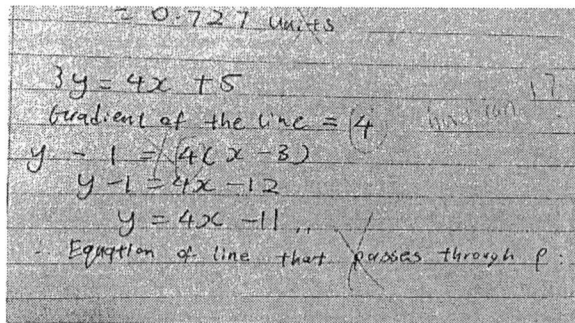 = 0.727 units
3y = 4x + 5
Gradient of the line = 4
y - 1 = 4(x - 3)
y - 1 = 4x - 12
y = 4x - 11 ,,
∴ Equation of line that passes through P :